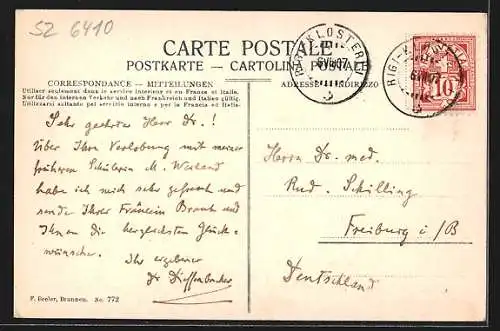 SZ 6410
CARTE POSTALE
POSTKARTE - CARTOLINA POSTALE
CORRESPONDANCE - MITTEILUNGEN
ADRESSE - INDIRIZZO
Utiliser seulement dans le service interieur et en France et Italie.
Nur für den internen Verkehr und nach Frankreich und Italien gültig.
Utilizzarsi soltanto pel servizio interno e per la Francia ed Italia.
KLOSTERLI
RIGI-K
10
Sehr geehrter Herr Dr.!
Über Ihre Verlobung mit meiner
früheren Schülerin M. Weiland
habe ich mich sehr gefreut und
sende Ihrer Fräulein Braut und
Ihnen die herzlichsten Glück-
wünsche.
Ihr ergebener
Dr Dieffenbacher
Herrn Dr. med.
Rud. Schilling
Freiburg i/B
Deutschland
F. Beeler, Brunnen. No. 772